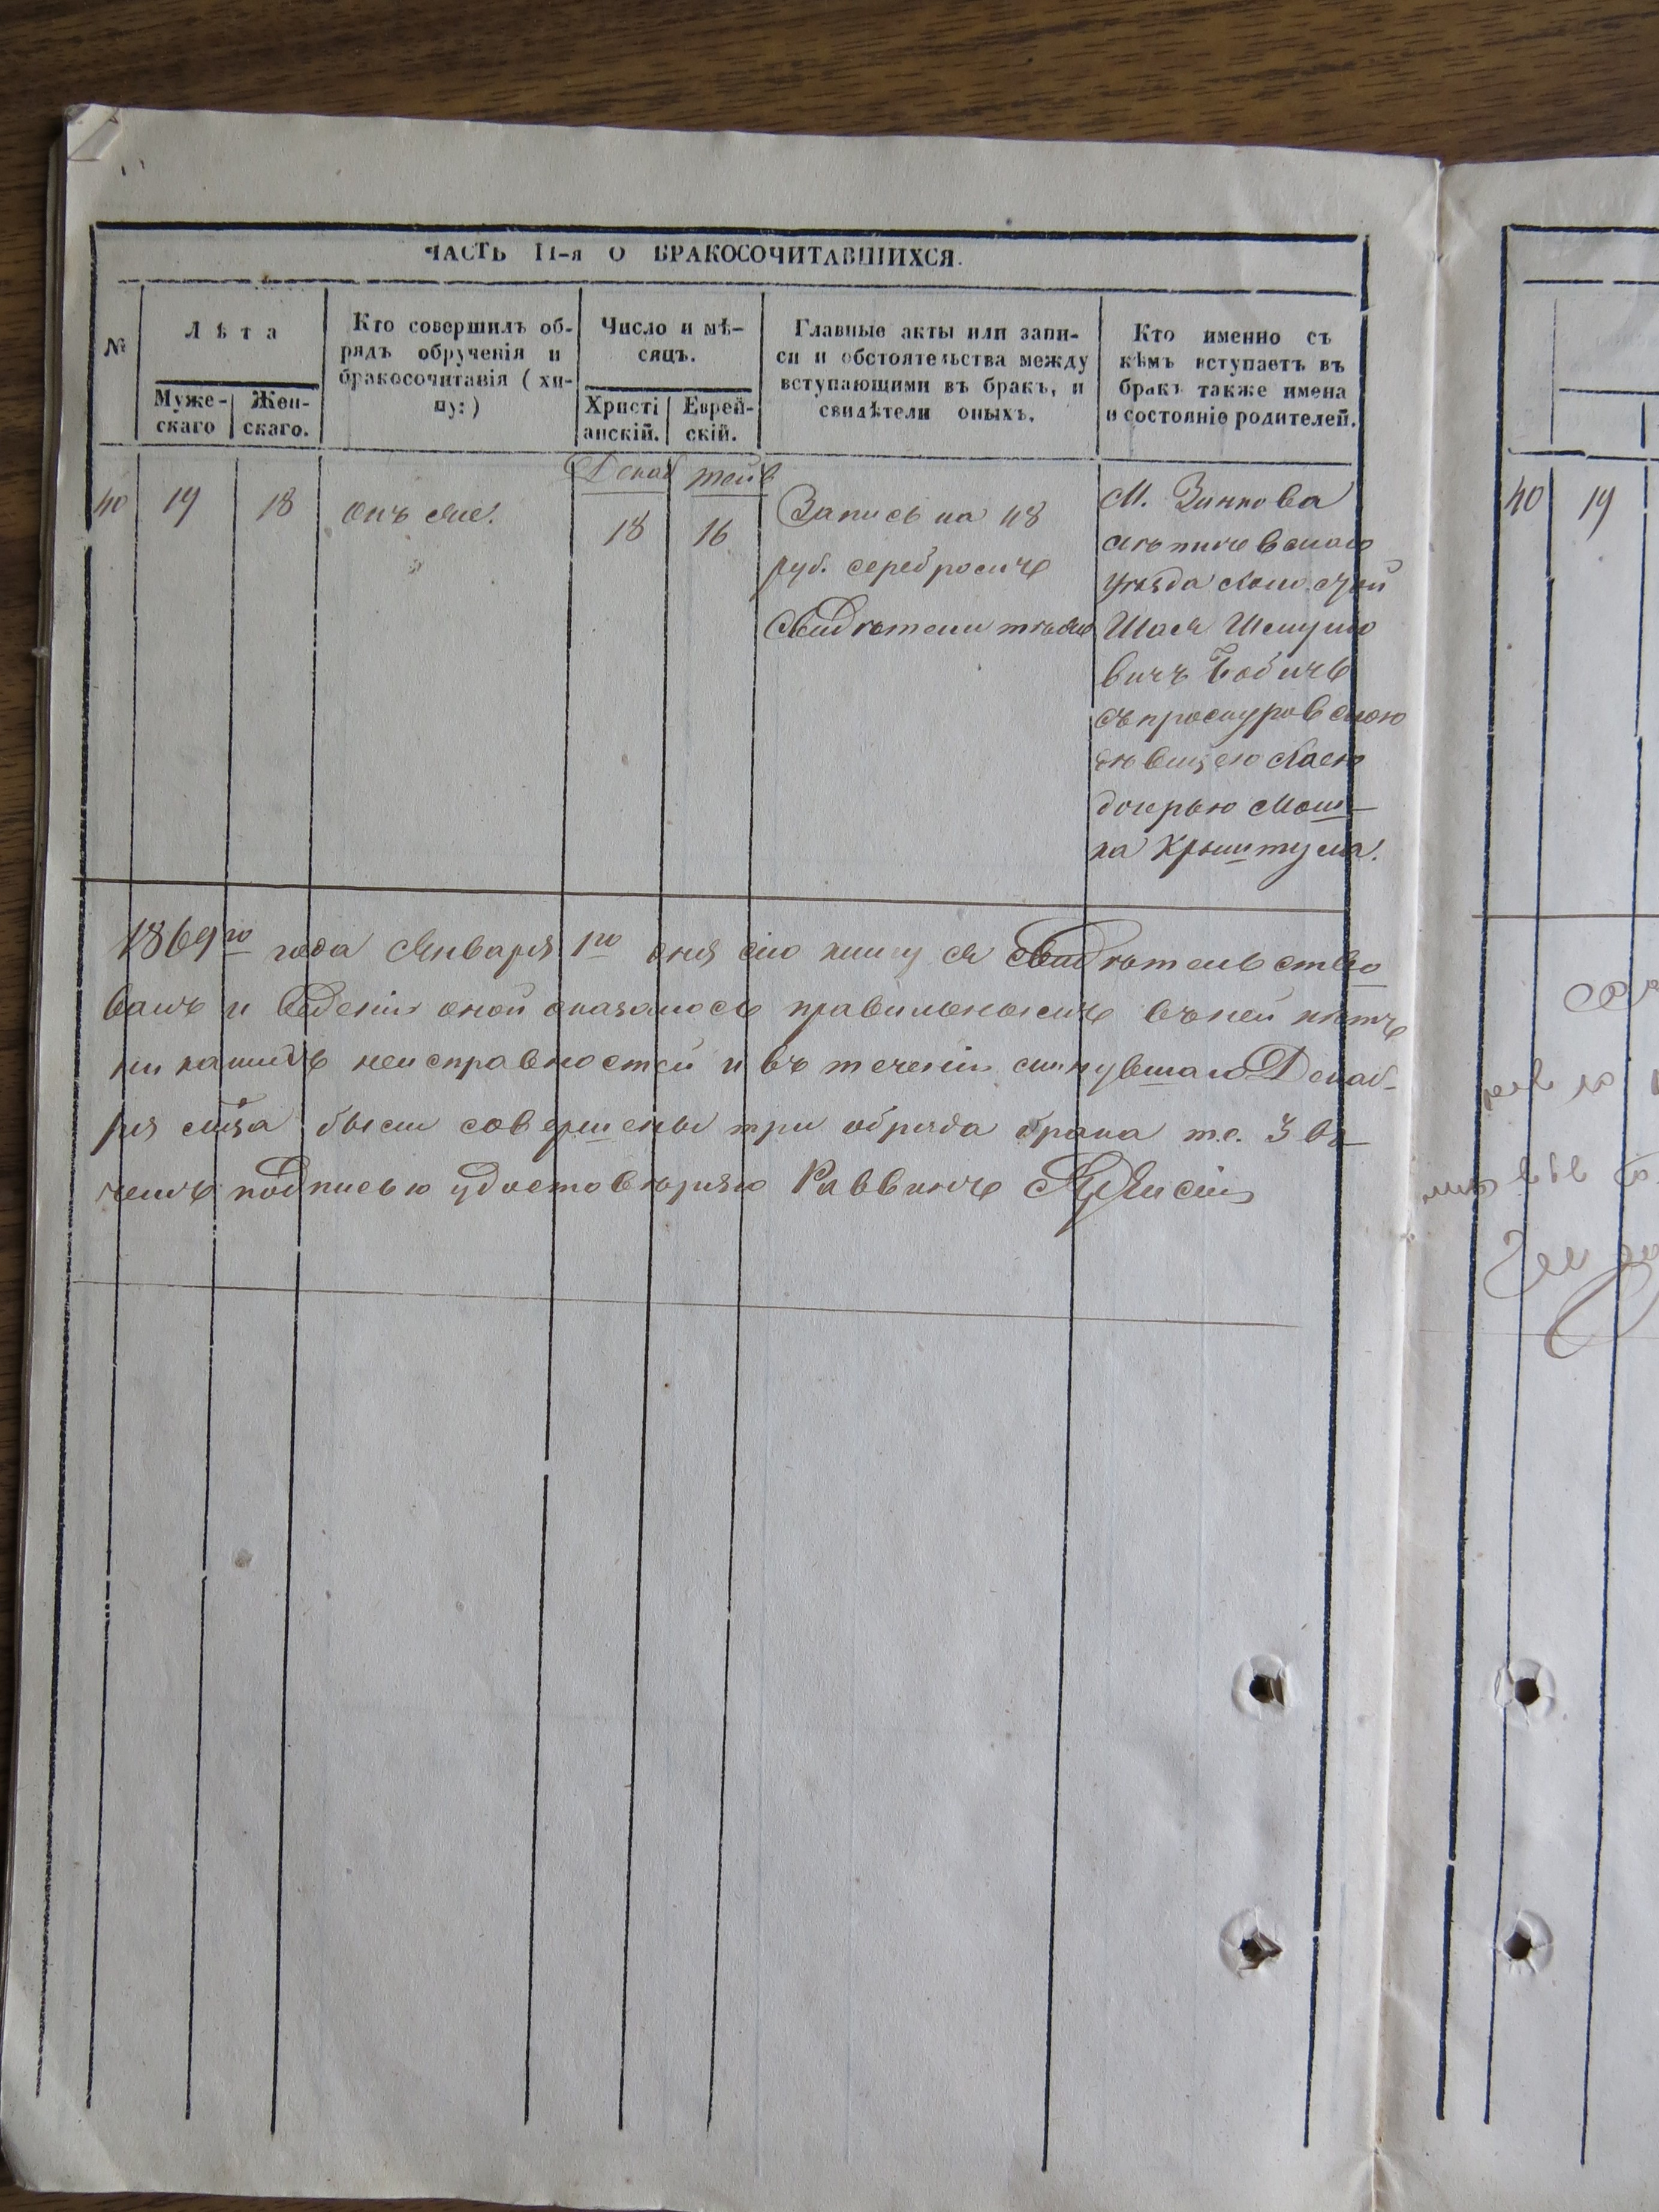 ЧАСТЬ II-я О БРАКОСОЧИТАВШИХСЯ.
№
Лѣта
Муже-
скаго
Жен-
скаго.
Кто совершилъ об-
рядъ обрученія и
бракосочитанія ( хи-
пу: )
Число и мѣ-
сяцъ.
Христі
анскій.
Еврей-
скій.
Главные акты или запи-
си и обстоятельства между
вступающими въ бракъ, и
свидѣтели оныхъ.
Кто именно съ
кѣмъ вступаетъ въ
бракъ также имена
и состояніе родителей.
40
19
18
онъ же.
Декаб
18
Тейв
16
Запись на 48
руб. серебромъ
Свидѣтели тѣже
М. Зинкова
Летичевскаго
уѣзда
Шая Шмулио
вичъ Бобичъ
съ проскуровскою
дѣвицею Хаею
дочерью Мош-
ка Крыштула.
1869го года Января 1го дня сію книгу я свидѣтельство
валъ и веденіе оной оказалось правильнымъ въ ней нѣтъ
ни какихъ неисправностей и въ теченіи минувшаго Декаб-
ря м͠ца были совершены три обряда брака т.е. 3 въ
чемъ подписью удостовѣряю Раввинъ
40
19